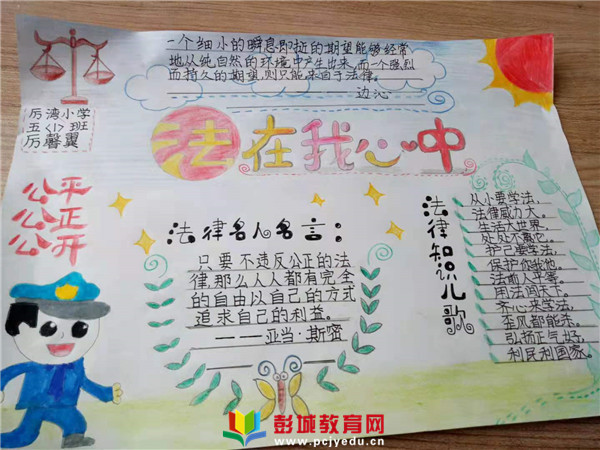 一个细小的瞬息即逝的期望能够经常
地从纯自然的环境中产生出来,而一个强烈
而持久的期望,则只能来自于法律。
——边沁
厉湾小学
五<1>班
厉馨翼
法在我心中
公平
公正
公开
法律名人名言:
只要不违反公正的法
律,那么人人都有完全
的自由以自己的方式
追求自己的利益。
———亚当·斯密
法律知识儿歌
从小要学法,
法律威力大。
生活大世界,
处处不离它。
护己要学法,
保护你我他。
法前人平等。
用法闯天下。
齐心来学法,
歪风都能杀。
弘扬正气好,
利民利国家。
彭城教育网
www.pcjyedu.cn